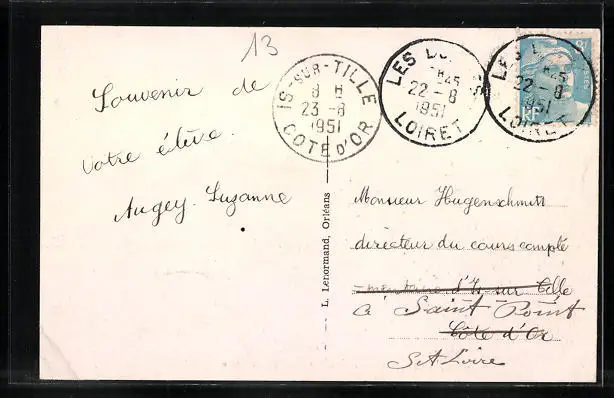 13
Souvenir de
votre élève.
Augey Suzanne
IS-SUR-TILLE
8 H
23 - 8
1951
COTE D'OR
LES
H45
22 - 8
1951
LOIRET
LES
H45
22 - 8
1951
LOIRET
POSTES
RF
L. Lenormand, Orléans
Monsieur Hugenschmitt
directeur du cours complé
-mentaire d'Is-sur-Tille
à Saint Point
Côte d'Or
S et Loire